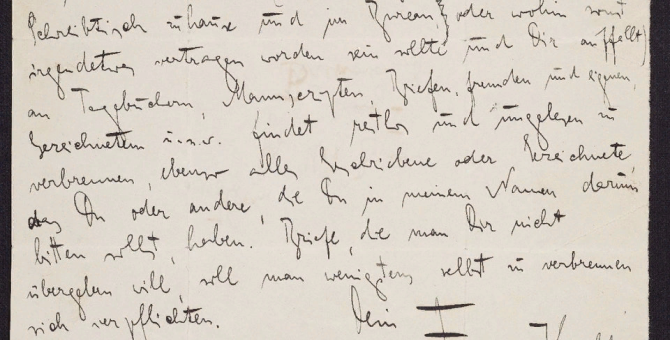 Schreibtisch zuhause und im Bureau, oder wohin sonst
irgendetwas vertragen worden sein sollte und Dir auffällt)
an Tagebüchern, Manuscripten, Briefen, fremden und eignen,
Gezeichnetem u.s.w. findet restlos und ungelesen zu
verbrennen, ebenso alles Geschriebene oder Gezeichnete,
das Du oder andere, die Du in meinem Namen darum
bitten sollst, haben. Briefe, die man Dir nicht
übergeben will, soll man wenigstens selbst zu verbrennen
sich verpflichten.
Dein